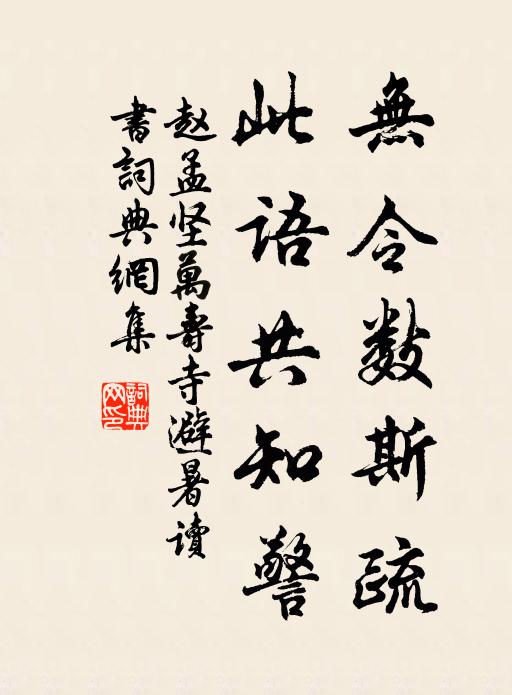 無令数斯疏
此语共知警
赵孟坚萬壽寺避暑读
書詞典網集
詞典网印